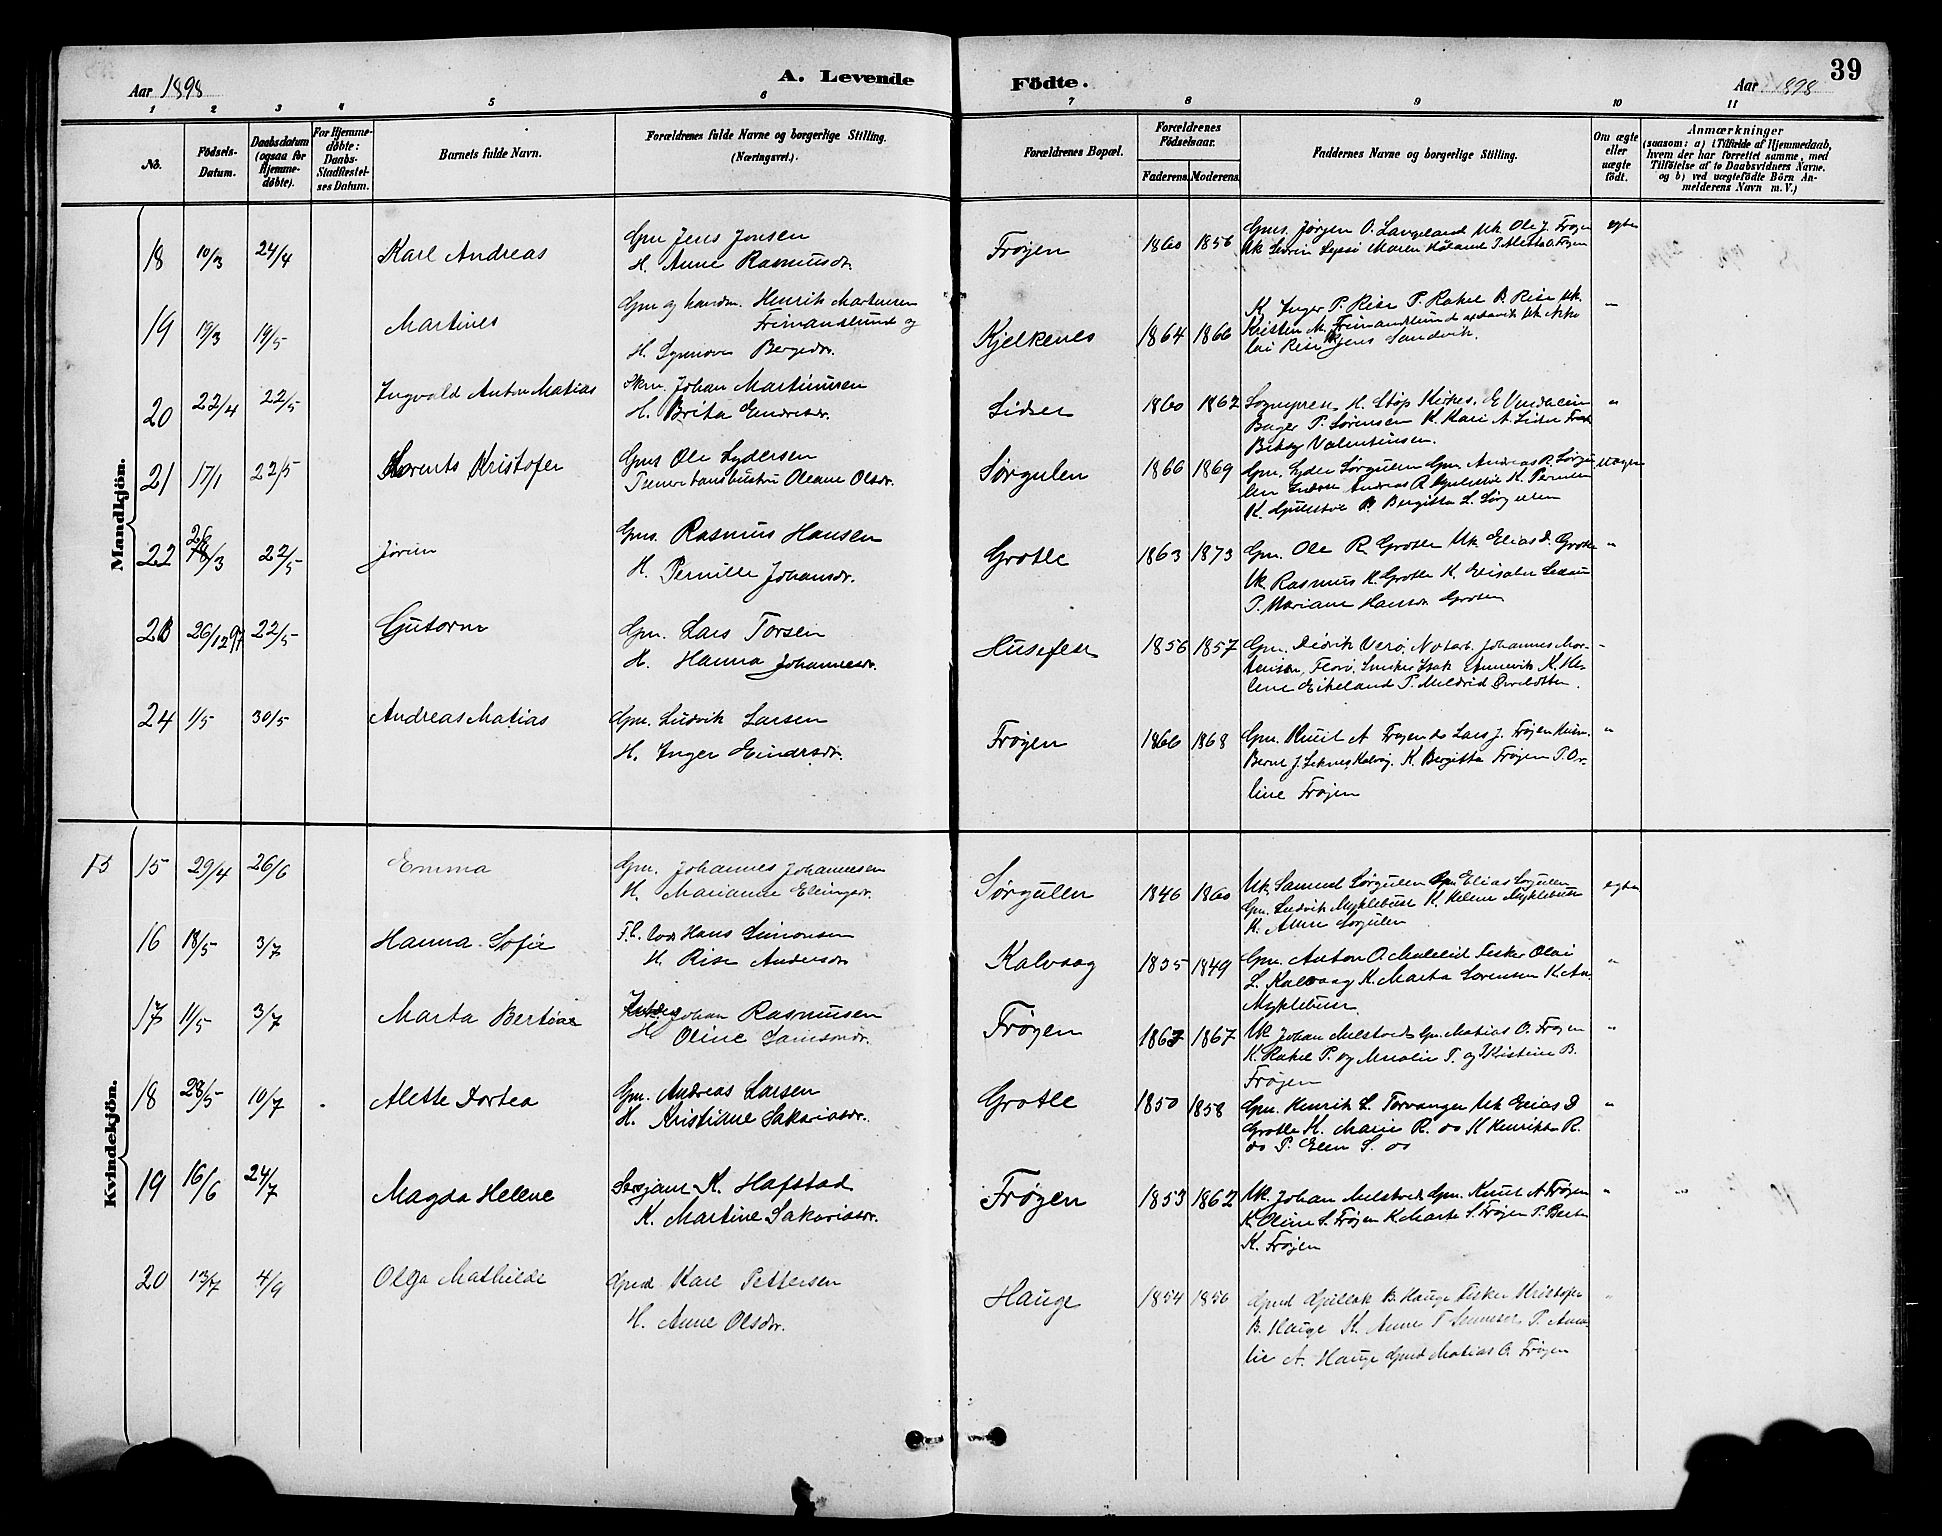 39
Aar 1898
A. Levende
Födte.
Aar 1898
1 2 3 4 5 6 7 8 9 10 11
No.
Födsels-Datum.
Daabsdatum (ogsaa for Hjemme-døbte).
For Hjemme-døbte: Daabs-Stadfæstel-ses Datum.
Barnets fulde Navn.
Forældrenes fulde Navne og borgerlige Stilling. (Næringsvei.)
Forældrenes Bopæl.
Forældrenes Födselsaar.
Faderens. Moderens.
Faddernes Navne og borgerlige Stilling.
Om ægte eller uægte født.
Anmærkninger
(saasom: a) i Tilfælde af Hjemmedaab, hvem der har forrettet samme, med Tilföielse af to Daabsvidners Navne. og b) ved uægtefödte Börn An-melderens Navn m. V.)
Mandkjön.
18 10/3 24/4 Karl Andreas
Gm Jens Jensen
H. Anne Rasmusdr.
Frøyen 1860 1856
Gms. Jørgen O. Langeland Uk Ole J. Frøyen
egte
19 19/3 19/5 Martines
Gm og handm. Henrik Martinsen
Frimandslund og
H. Synnove Bergedr.
Kjelkenes 1864 1866
K. Inger P. Rise P. Rakel B. Rise Uk.
Kristen M. Frimandslund Uk Niko
lai Rise Uk Jens Sandvik.
"
20 22/4 22/5 Ingvald Anton Matias
Johan Martinusen
H. Brita Endresdr.
Lidser 1860 1862
Bager P. Sørensen K. Kari A. Lidser
Valentinsen.
"
21 17/1 22/5 Lorents Kristofer
Gms Ole Lydersen
Oleane Olsdr.
Sørgulen 1866 1869
Gm. Lyder Sørgulen Gm. Andreas R. Sørgu
K. Bergitta L. Sørgulen
uegte
22 26/3 22/5 Jørim
Gms. Rasmus Hansen
H. Pernille Johansdr.
Grotle 1863 1873
Gm. Ole R. Grotle Uk. Elias D. Grotle
Uk Rasmus H. Grotle K. Elisabe
P. Mariane Hansdr Grotle
"
23 26/12 97 22/5 Gutorm
Gm. Lars Torsen
H. Hanna Johannesdr.
Husefest 1856 1857
Gm. Didrik Verø, Johannes Mor-
tensen. Florø. Isak K. He-
lene Eikeland P. Meldrid
24 1/5 30/5 Andreas Matias
Gm. Ludvik Larsen
H. Inger Eindrsdr.
Frøyen 1866 1868
Gm. Knut A Frøyen do Lars J. Frøyen
Bernt J. Kalvåg. K. Bergitta Frøyen P. Or-
line Frøyen
"
Kvindekjön.
15 15 29/4 26/6 Emma
Gm. Johannes Johannesen
H. Marianne Ellingsdr.
Sørgulen 1846 1860
Uk. Samuel Sørgulen Gm Elias Sørgulen
Gm. Ludvik Myklebust K. Helene Myklebust
K. Anne Sørgulen
egte
16 18/5 3/7 Hanna Sofie
Hans Simonsen
H. Rise Andersdr
Kalvaag 1835 1849
Gm. Anton O. Fisker Olai
L. Kalvaag K. Marta Sørensen K. An.
Myklebust.
"
17 11/5 3/7 Marta Bertine
Johan Rasmusen
H Oline Samsondr.
Frøyen 1863 1867
Uk Johan Gm. Matias O. Frøyen
K. Rakel P. og P. og Kristine B.
Frøyen
"
18 28/5 10/7 Alette Dortea
Gm. Andreas Larsen
H. Kristiane Sakariasdr.
Grotle 1850 1858
Gm. Henrik L. Torvanger Uk Elias D
Grotle K. Marie R. do K Henrikke R.
do P. Elen S. do
"
19 16/6 24/7 Magda Helene
Sersjant K. Hafstad
K. Martine Sakariasdr.
Frøyen 1853 1862
Uk. Johan Gm. Knut A Frøyen
K. Oline S. Frøyen K. Marte S. Frøyen P. Berte
K. Frøyen
"
20 13/7 4/9 Olga Mathilde
Gmd Karl Pettersen
H. Anne Olsdr.
Hauge 1854 1856
Gmd Gullak B. Hauge Fisker Kristofer
B. Hauge K. Anne T P. Ama-
lie A. Hauge Gmd Matias O. Frøyen
"